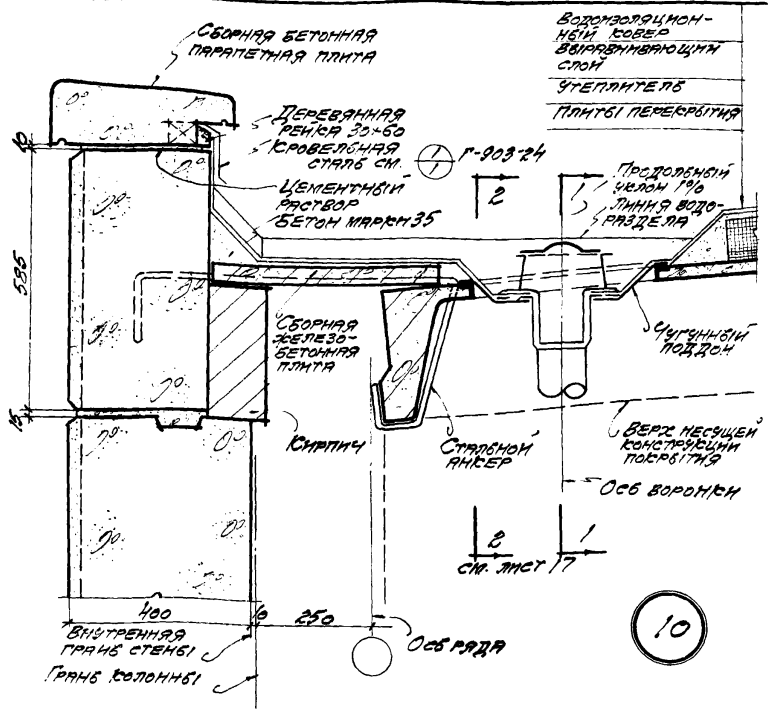 СБОРНАЯ БЕТОННАЯ
ПАРАПЕТНАЯ ПЛИТА
ВОДОИЗОЛЯЦИОН-
НЫЙ КОВЕР
ВЫРАВНИВАЮЩИЙ
СЛОЙ
УТЕПЛИТЕЛЬ
ПЛИТЫ ПЕРЕКРЫТИЯ
ДЕРЕВЯННАЯ
РЕЙКА 30×60
КРОВЕЛЬНАЯ
СТАЛЬ СМ. 1 Г-903-24
ЦЕМЕНТНЫЙ
РАСТВОР
БЕТОН МАРКИ 35
2
1
ПРОДОЛЬНЫЙ
УКЛОН 1%
ЛИНИЯ ВОДО-
РАЗДЕЛА
10
585
15
СБОРНАЯ
ЖЕЛЕЗО-
БЕТОННАЯ
ПЛИТА
ЧУГУННЫЙ
ПОДДОН
КИРПИЧ
СТАЛЬНОЙ
АНКЕР
ВЕРХ НЕСУЩЕЙ
КОНСТРУКЦИИ
ПОКРЫТИЯ
ОСЬ ВОРОНКИ
2
1
СМ. ЛИСТ 17
400
10
250
10
ВНУТРЕННЯЯ
ГРАНЬ СТЕНЫ
ОСЬ РЯДА
ГРАНЬ КОЛОННЫ